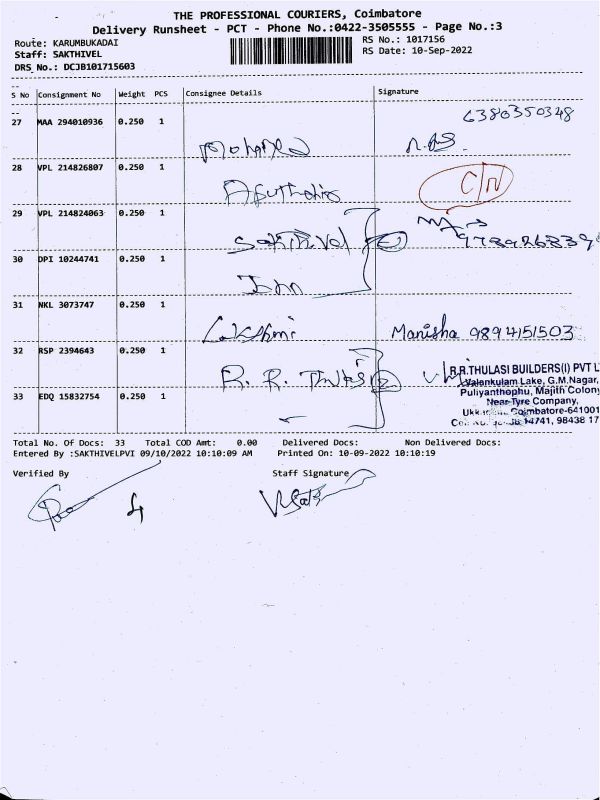 THE PROFESSIONAL COURIERS, Coimbatore
Delivery Runsheet - PCT - Phone No.:0422-3505555 - Page No.:3
Route: KARUMBUKADAI
RS No.: 1017156
Staff: SAKTHIVEL
RS Date: 10-Sep-2022
DRS No.: DCJB101715603
S No Consignment No Weight PCS Consignee Details Signature
27 MAA 294010936 0.250 1 6380350348
Mohamed
28 VPL 214826807 0.250 1 C/N
29 VPL 214824063 0.250 1
Sakthivel
30 DPI 10244741 0.250 1
John
31 NKL 3073747 0.250 1
Lakshmi Manisha 9894151503
32 RSP 2394643 0.250 1
R.R. Thulasi 2
R.R.THULASI BUILDERS(I) PVT L
Valankulam Lake, G.M.Nagar,
Puliyanthophu, Majith Colony
33 EDQ 15832754 0.250 1
Near Tyre Company,
Coimbatore-641001
14741, 98438 17
Total No. Of Docs: 33 Total COD Amt: 0.00 Delivered Docs: Non Delivered Docs:
Entered By :SAKTHIVELPVI 09/10/2022 10:10:09 AM Printed On: 10-09-2022 10:10:19
Verified By Staff Signature